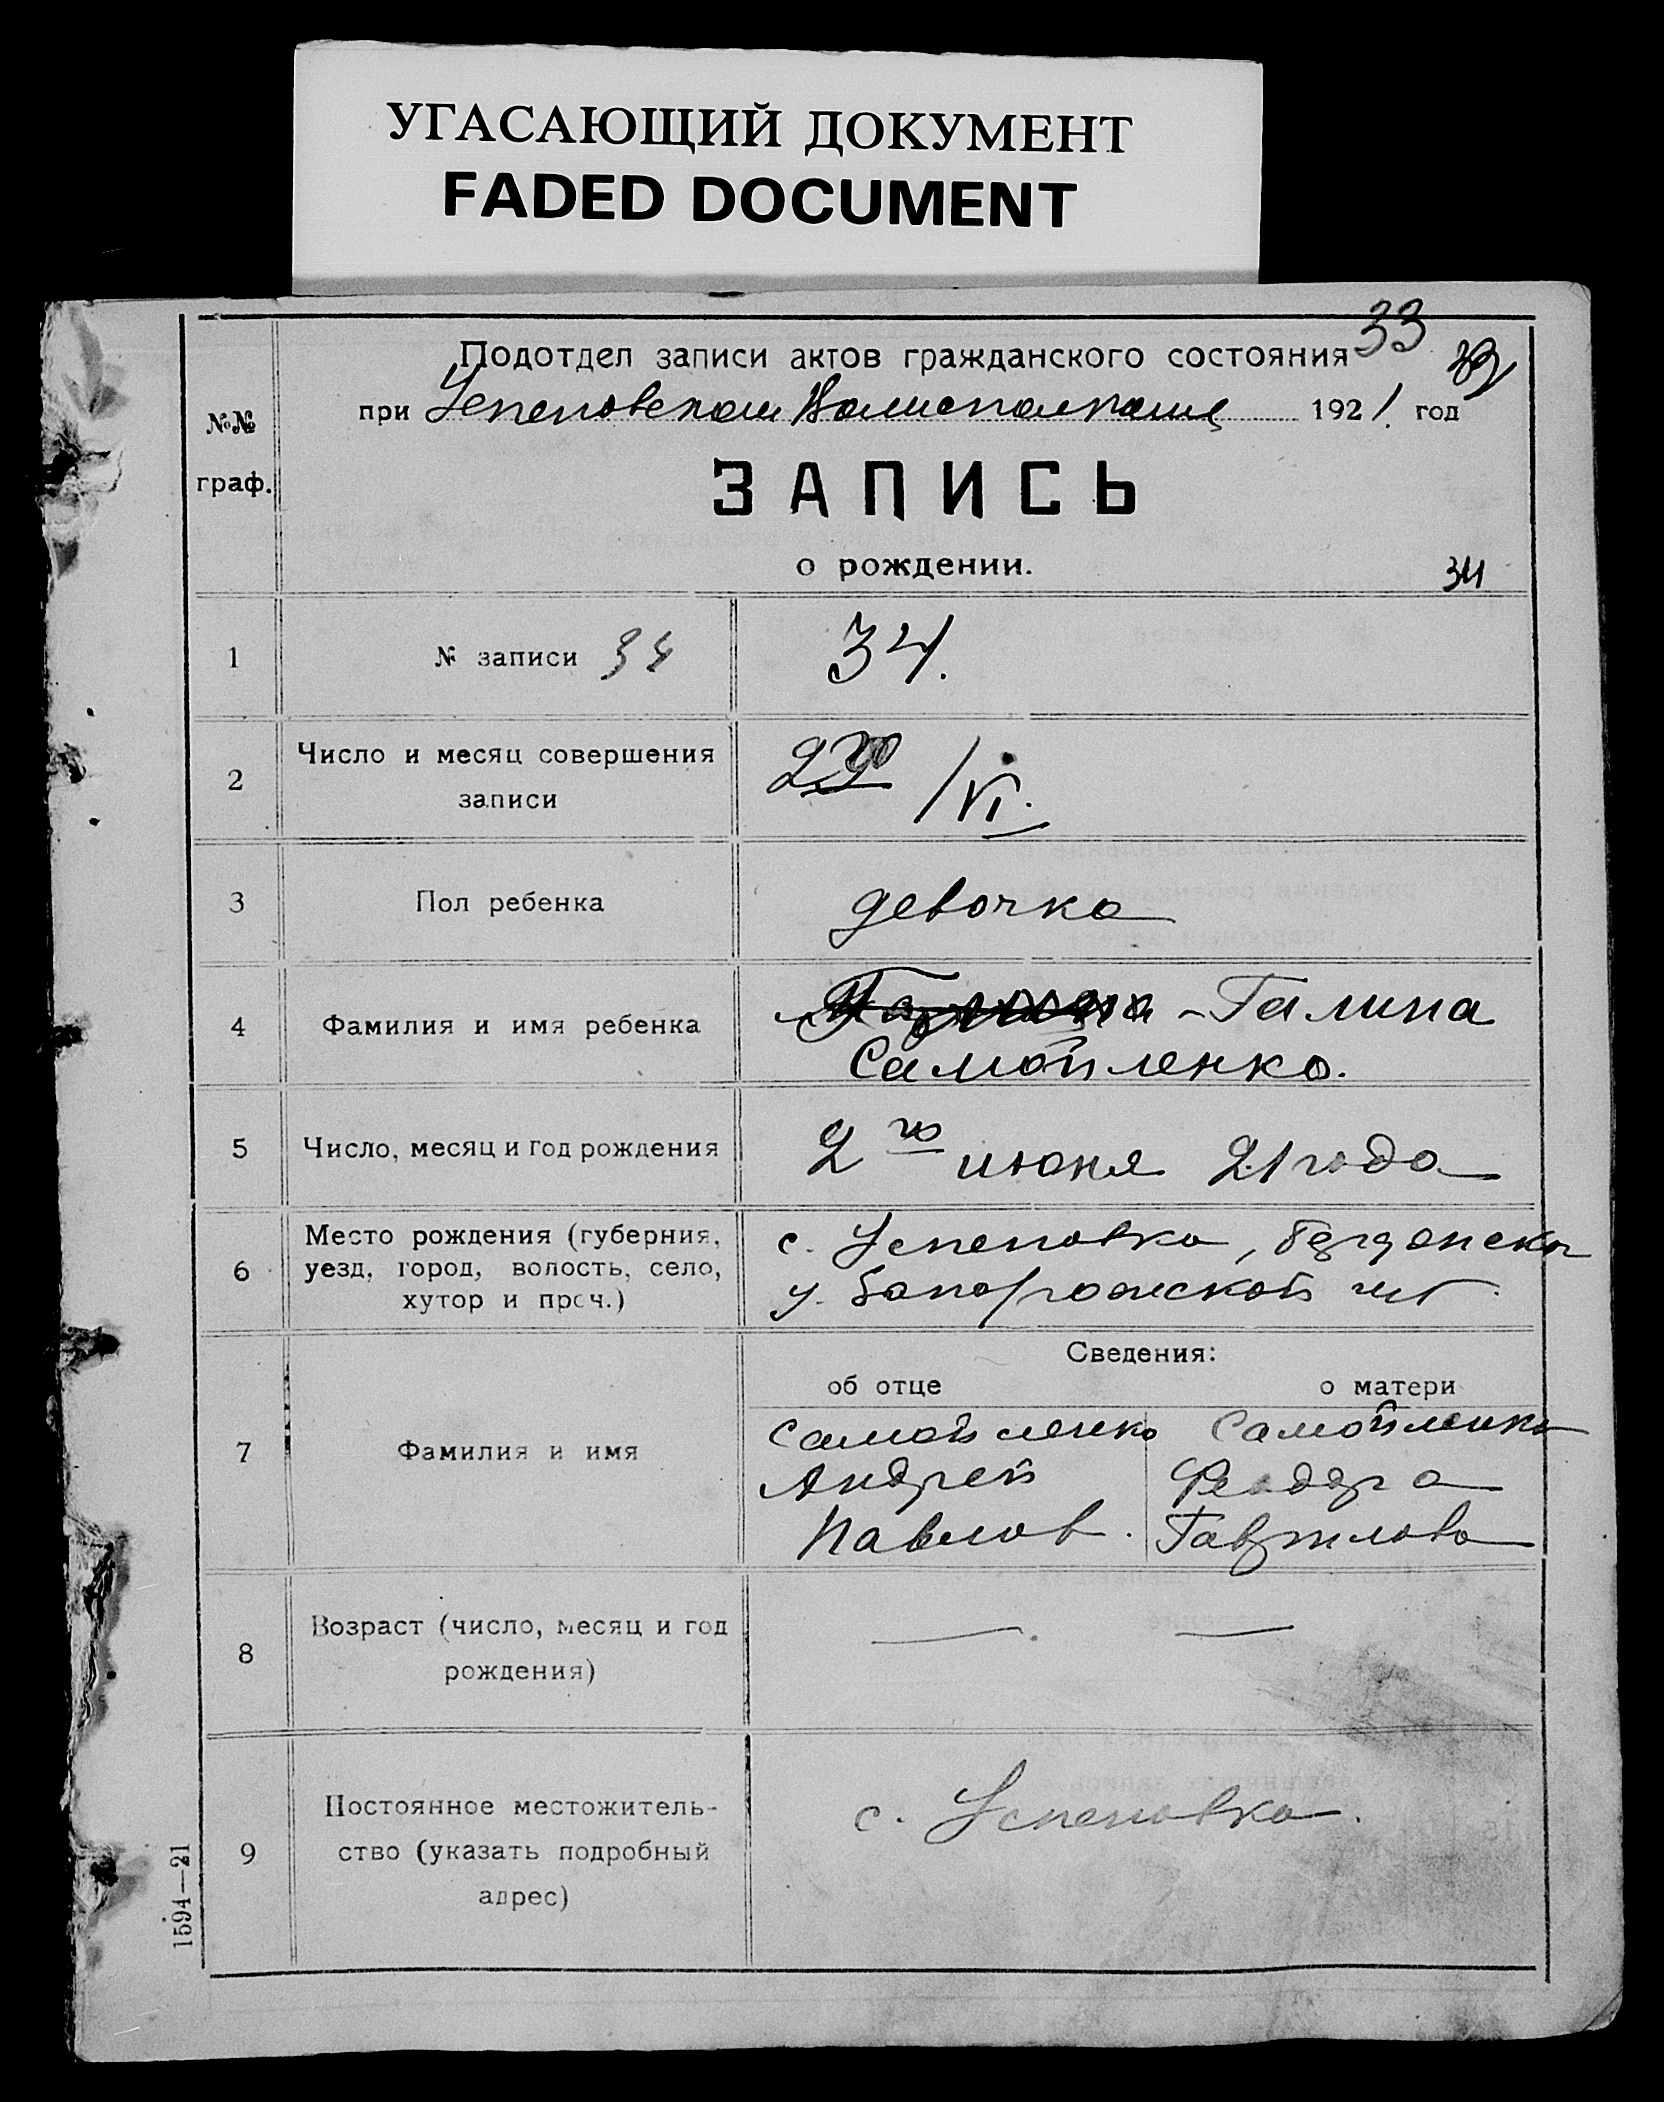 УГАСАЮЩИЙ ДОКУМЕНТ
FADED DOCUMENT
33
Подотдел записи актов гражданского состояния
при Успеновском Волисполкоме 1921 год
№№ граф.
ЗАПИСЬ
о рождении.
34
1 № записи 34 34.
2 Число и месяц совершения записи /VI.
3 Пол ребенка девочка
4 Фамилия и имя ребенка - Галина
Самойленко.
5 Число, месяц и год рождения 2го июня 21 года
6 Место рождения (губерния, уезд, город, волость, село, хутор и проч.)
с. Успеновка, Бердянско
у. Запорожской губ.
Сведения:
об отце о матери
7 Фамилия и имя
Самойленко Самойленко
Андрей Феодора
Павлов. Гаврилова
8 Возраст (число, месяц и год рождения) —. —
9 Постоянное местожительство (указать подробный адрес)
с. Успеновка.
1594—21